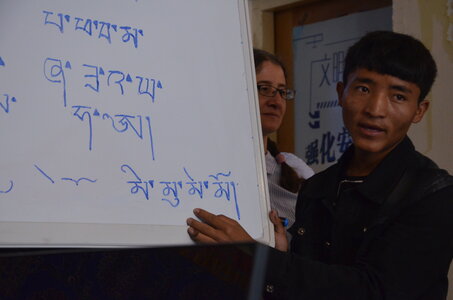 པ་ཕ་བ་མ་
ཞ་ཟ་འ་ཡ་
ཧ་ཨ།
མི་མུ་མེ་མོ།
文明
强化安